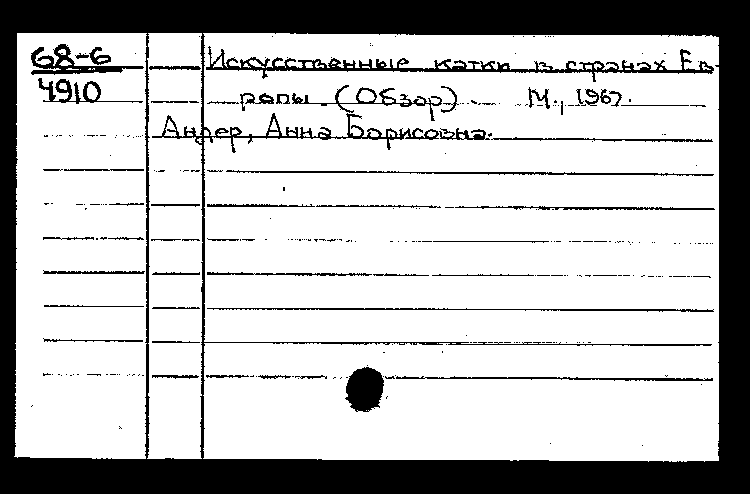 68-6
4910
Искусственные катки в странах Ев-
ропы. (Обзор) — М., 1967.
Андер, Анна Борисовна.